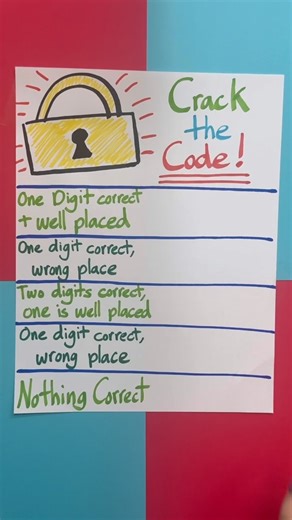 Crack
the
Code!
One Digit correct
+ well placed
One digit correct,
wrong place
Two digits correct,
one is well placed
One digit correct,
wrong place
Nothing Correct